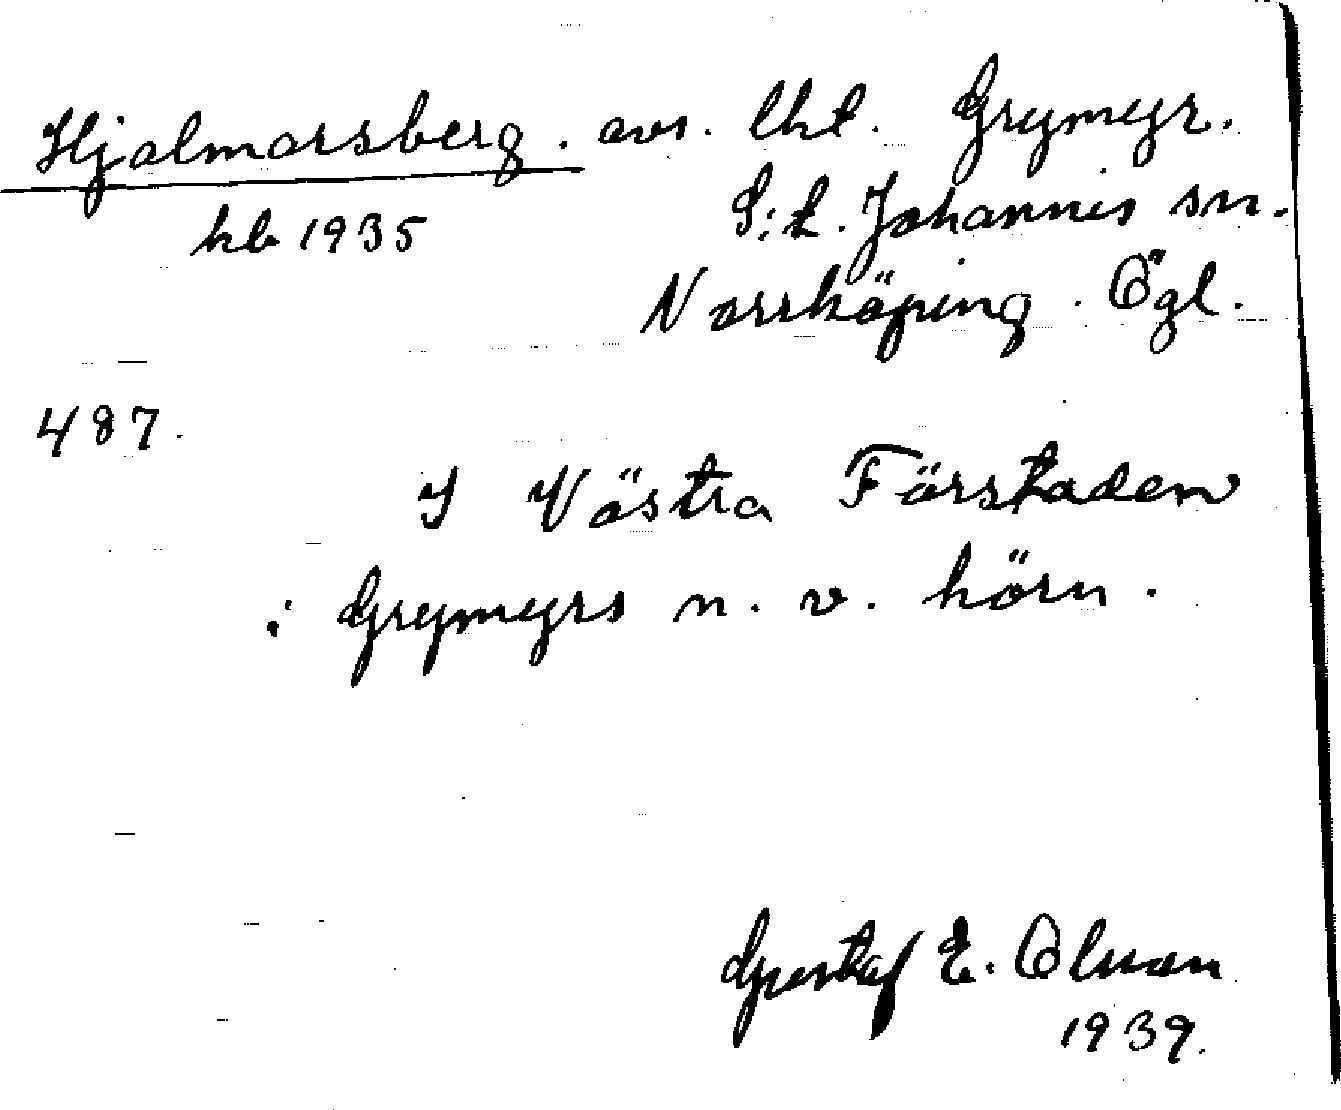 Hjalmarsberg. avs. lht. Grymyr.
hb 1935 S:t. Johannis sn.
Norrköping. Ögl.
487.
I Västra Förstaden
i Grymyrs n. v. hörn.
Gustaf E. Olsson
1939.